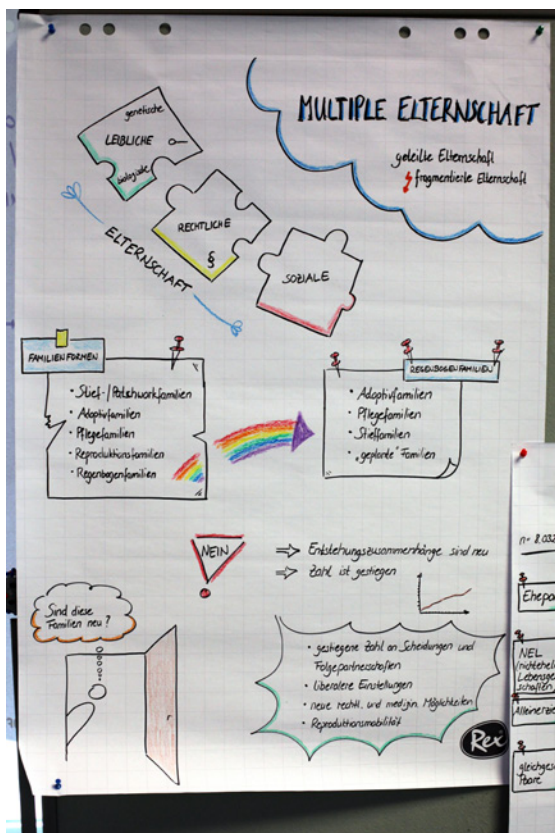 MULTIPLE ELTERNSCHAFT
geteilte Elternschaft
fragmentierte Elternschaft
genetische
LEIBLICHE
biologische
RECHTLICHE
§
SOZIALE
ELTERNSCHAFT
FAMILIENFORMEN
• Stief-/Patchworkfamilien
• Adoptivfamilien
• Pflegefamilien
• Reproduktionsfamilien
• Regenbogenfamilien
REGENBOGENFAMILIEN
• Adoptivfamilien
• Pflegefamilien
• Stieffamilien
• „geplante" Familien
NEIN
⇒ Entstehungszusammenhänge sind neu
⇒ Zahl ist gestiegen
Sind diese
Familien neu?
• gestiegene Zahl an Scheidungen und
Folgepartnerschaften
• liberalere Einstellungen
• neue rechtl. und medizin. Möglichkeiten
• Reproduktionsmobilität
Rex
n= 8.032
Ehepa
NEL
(nichtehel
Lebensge
schaften
Alleinerzie
gleichges
Paare